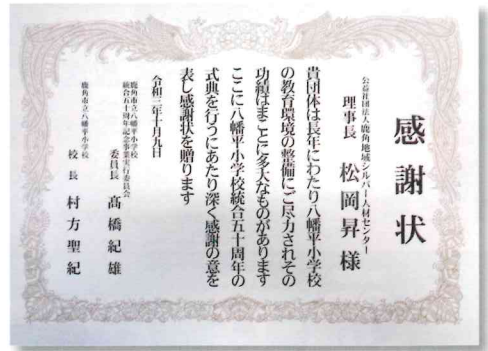 感謝状
公益社団法人鹿角地域シルバー人材センター
理事長 松岡昇様
貴団体は長年にわたり八幡平小学校
の教育環境の整備にご尽力されその
功績はまことに多大なものがあります
ここに八幡平小学校統合五十周年の
式典を行うにあたり深く感謝の意を
表し感謝状を贈ります
令和三年十月九日
鹿角市立八幡平小学校
統合五十周年記念事業実行委員会
委員長 髙橋紀雄
鹿角市立八幡平小学校
校長 村方聖紀